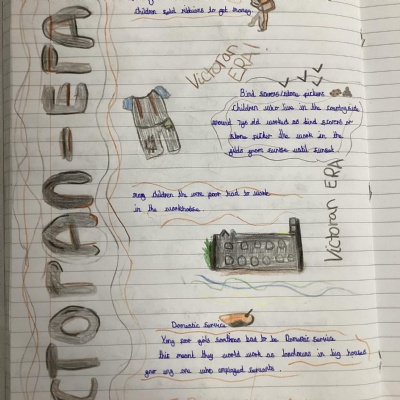 children sold ribbions to get money
Victorian
ERA!
Bird scarers/stone pickers
Children who live in the countryside
around 7yrs old worked as bird scarers or
stone picker the work in the
fields from sunrise until sunset.
many children the were poor had to work
in the workhouse
Victorian ERA
Domestic Service
Very poor girls somtimes had to be Domestic Service
this meant they would work as in big houses
for any one who employed servants.
CTORAN-ERA